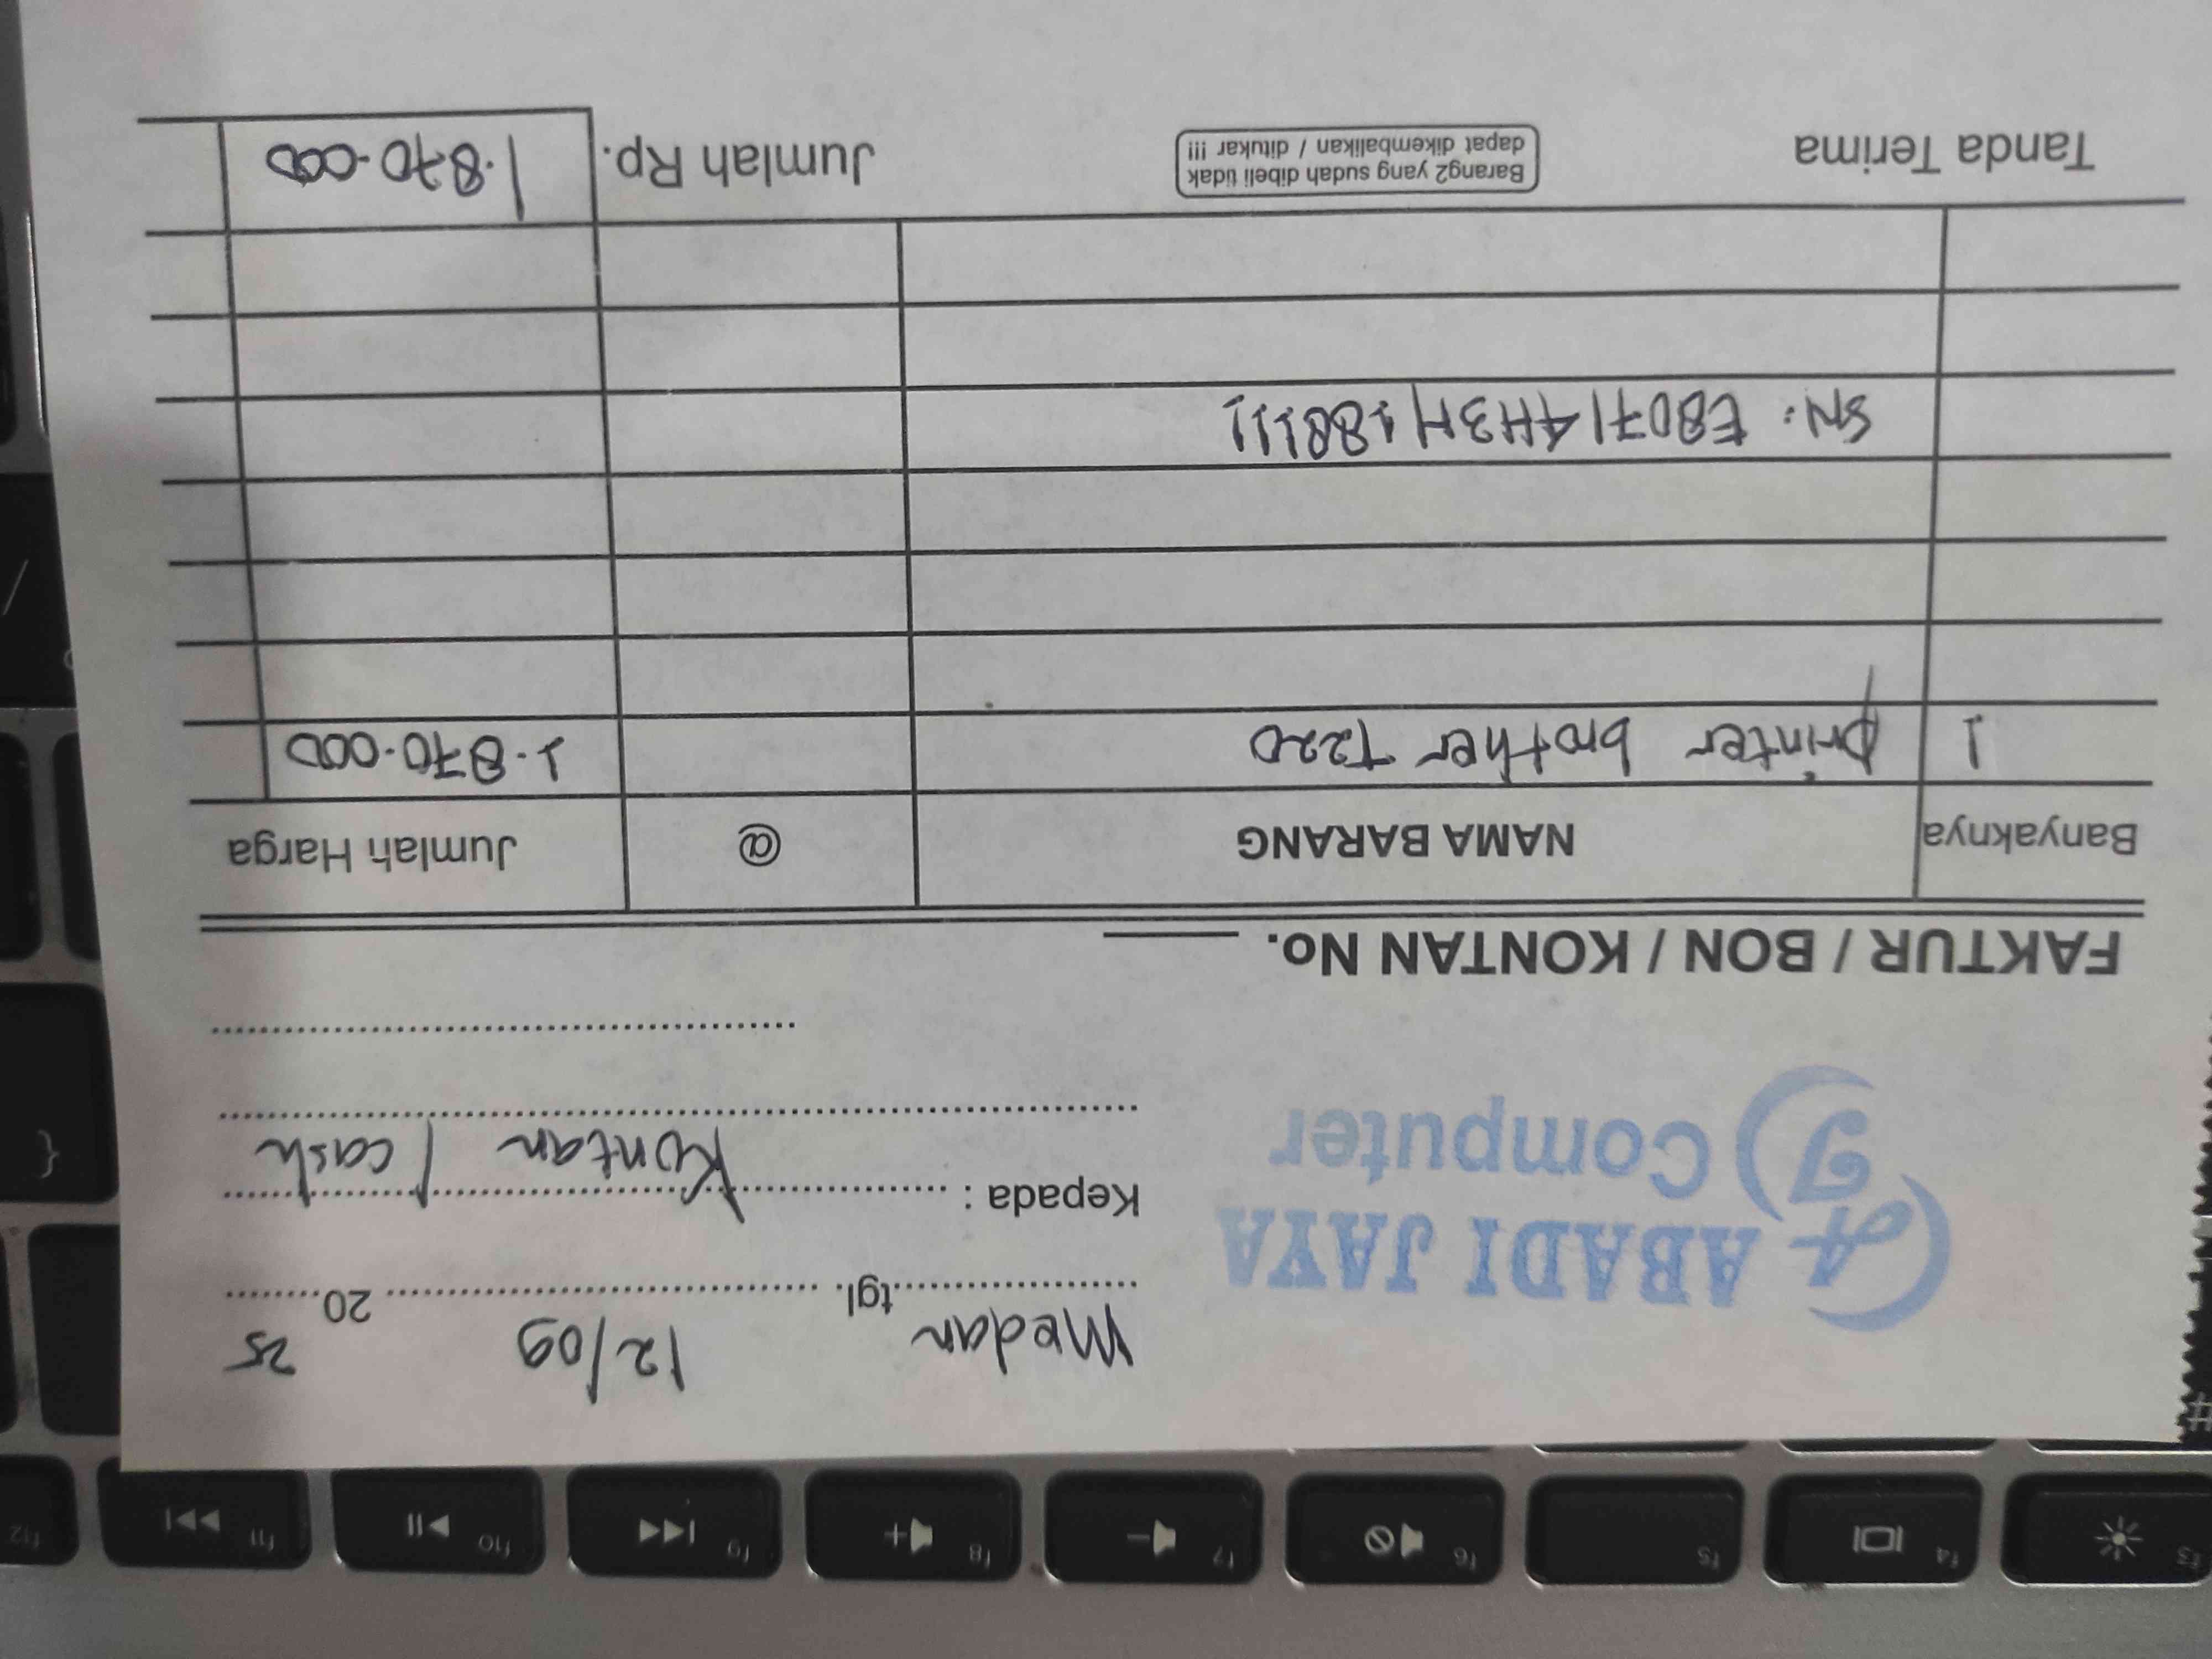 Medan tgl. 12/09 2025
A J ABADI JAYA
Computer
Kepada : Kontan / cash
FAKTUR / BON / KONTAN No.
Banyaknya NAMA BARANG @ Jumlah Harga
1 printer brother T220 1.870.000
SN: E80714H3H188111
Tanda Terima
Barang2 yang sudah dibeli tidak
dapat dikembalikan / ditukar !!!
Jumlah Rp. 1.870.000
f3 f4 f5 f6 f7 f8 f9 f10 f11 f12